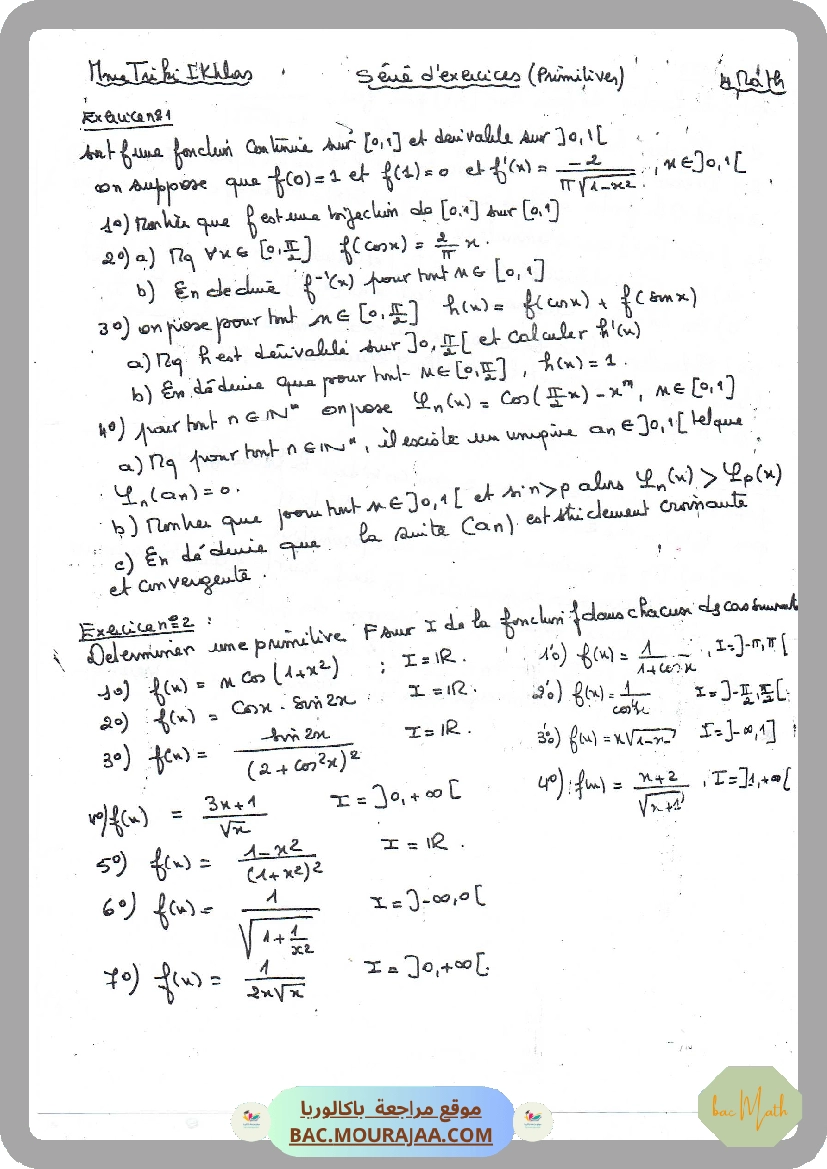 Mme Triki Ikhlas Série d'exercices (Primitives) 4 Math
Exercice n°1
Soit f une fonction continue sur [0,1] et dérivable sur ]0,1[
on suppose que f(0)=1 et f(1)=0 et f'(x) = -2/(π√(1-x²)), x∈]0,1[
1°) Montrer que f est une bijection de [0,1] sur [0,1]
2°) a) Mq ∀x∈[0,π/2] f(cosx) = 2/π x.
b) En déduire f⁻¹(x) pour tout x∈[0,1]
3°) on pose pour tout x∈[0,π/2] h(x) = f(cosx) + f(sinx)
a) Mq h est dérivable sur ]0,π/2[ et calculer h'(x)
b) En déduire que pour tout x∈[0,π/2], h(x) = 1.
4°) pour tout n∈IN* on pose φn(x) = cos(π/2 x) - xⁿ, x∈[0,1]
a) Mq pour tout n∈IN*, il existe un unique an∈]0,1[ tel que
φn(an) = 0.
b) Montrer que pour tout x∈]0,1[ et si n>p alors φn(x) > φp(x)
c) En déduire que la suite (an) est strictement croissante
et convergente.
Exercice n°2 :
Determiner une primitive F sur I de la fonction f dans chacun des cas suivants
1°) f(x) = x cos(1+x²) ; I = IR.
2°) f(x) = cosx . sin2x I = IR.
3°) f(x) = sin2x/(2+cos²x)² I = IR.
4°) f(x) = (3x+1)/√x I = ]0,+∞[
5°) f(x) = (1-x²)/(1+x²)² I = IR.
6°) f(x) = 1/√(1+1/x²) I = ]-∞,0[
7°) f(x) = 1/(2x√x) I = ]0,+∞[.
1'°) f(x) = 1/(1+cosx), I = ]-π,π[
2'°) f(x) = 1/cos⁴x I = ]-π/2,π/2[
3'°) f(x) = x√(1-x) I = ]-∞,1]
4°) f(x) = (x+2)/√(x+1), I = ]1,+∞[
bacMath
موقع مراجعة باكالوريا
BAC.MOURAJAA.COM